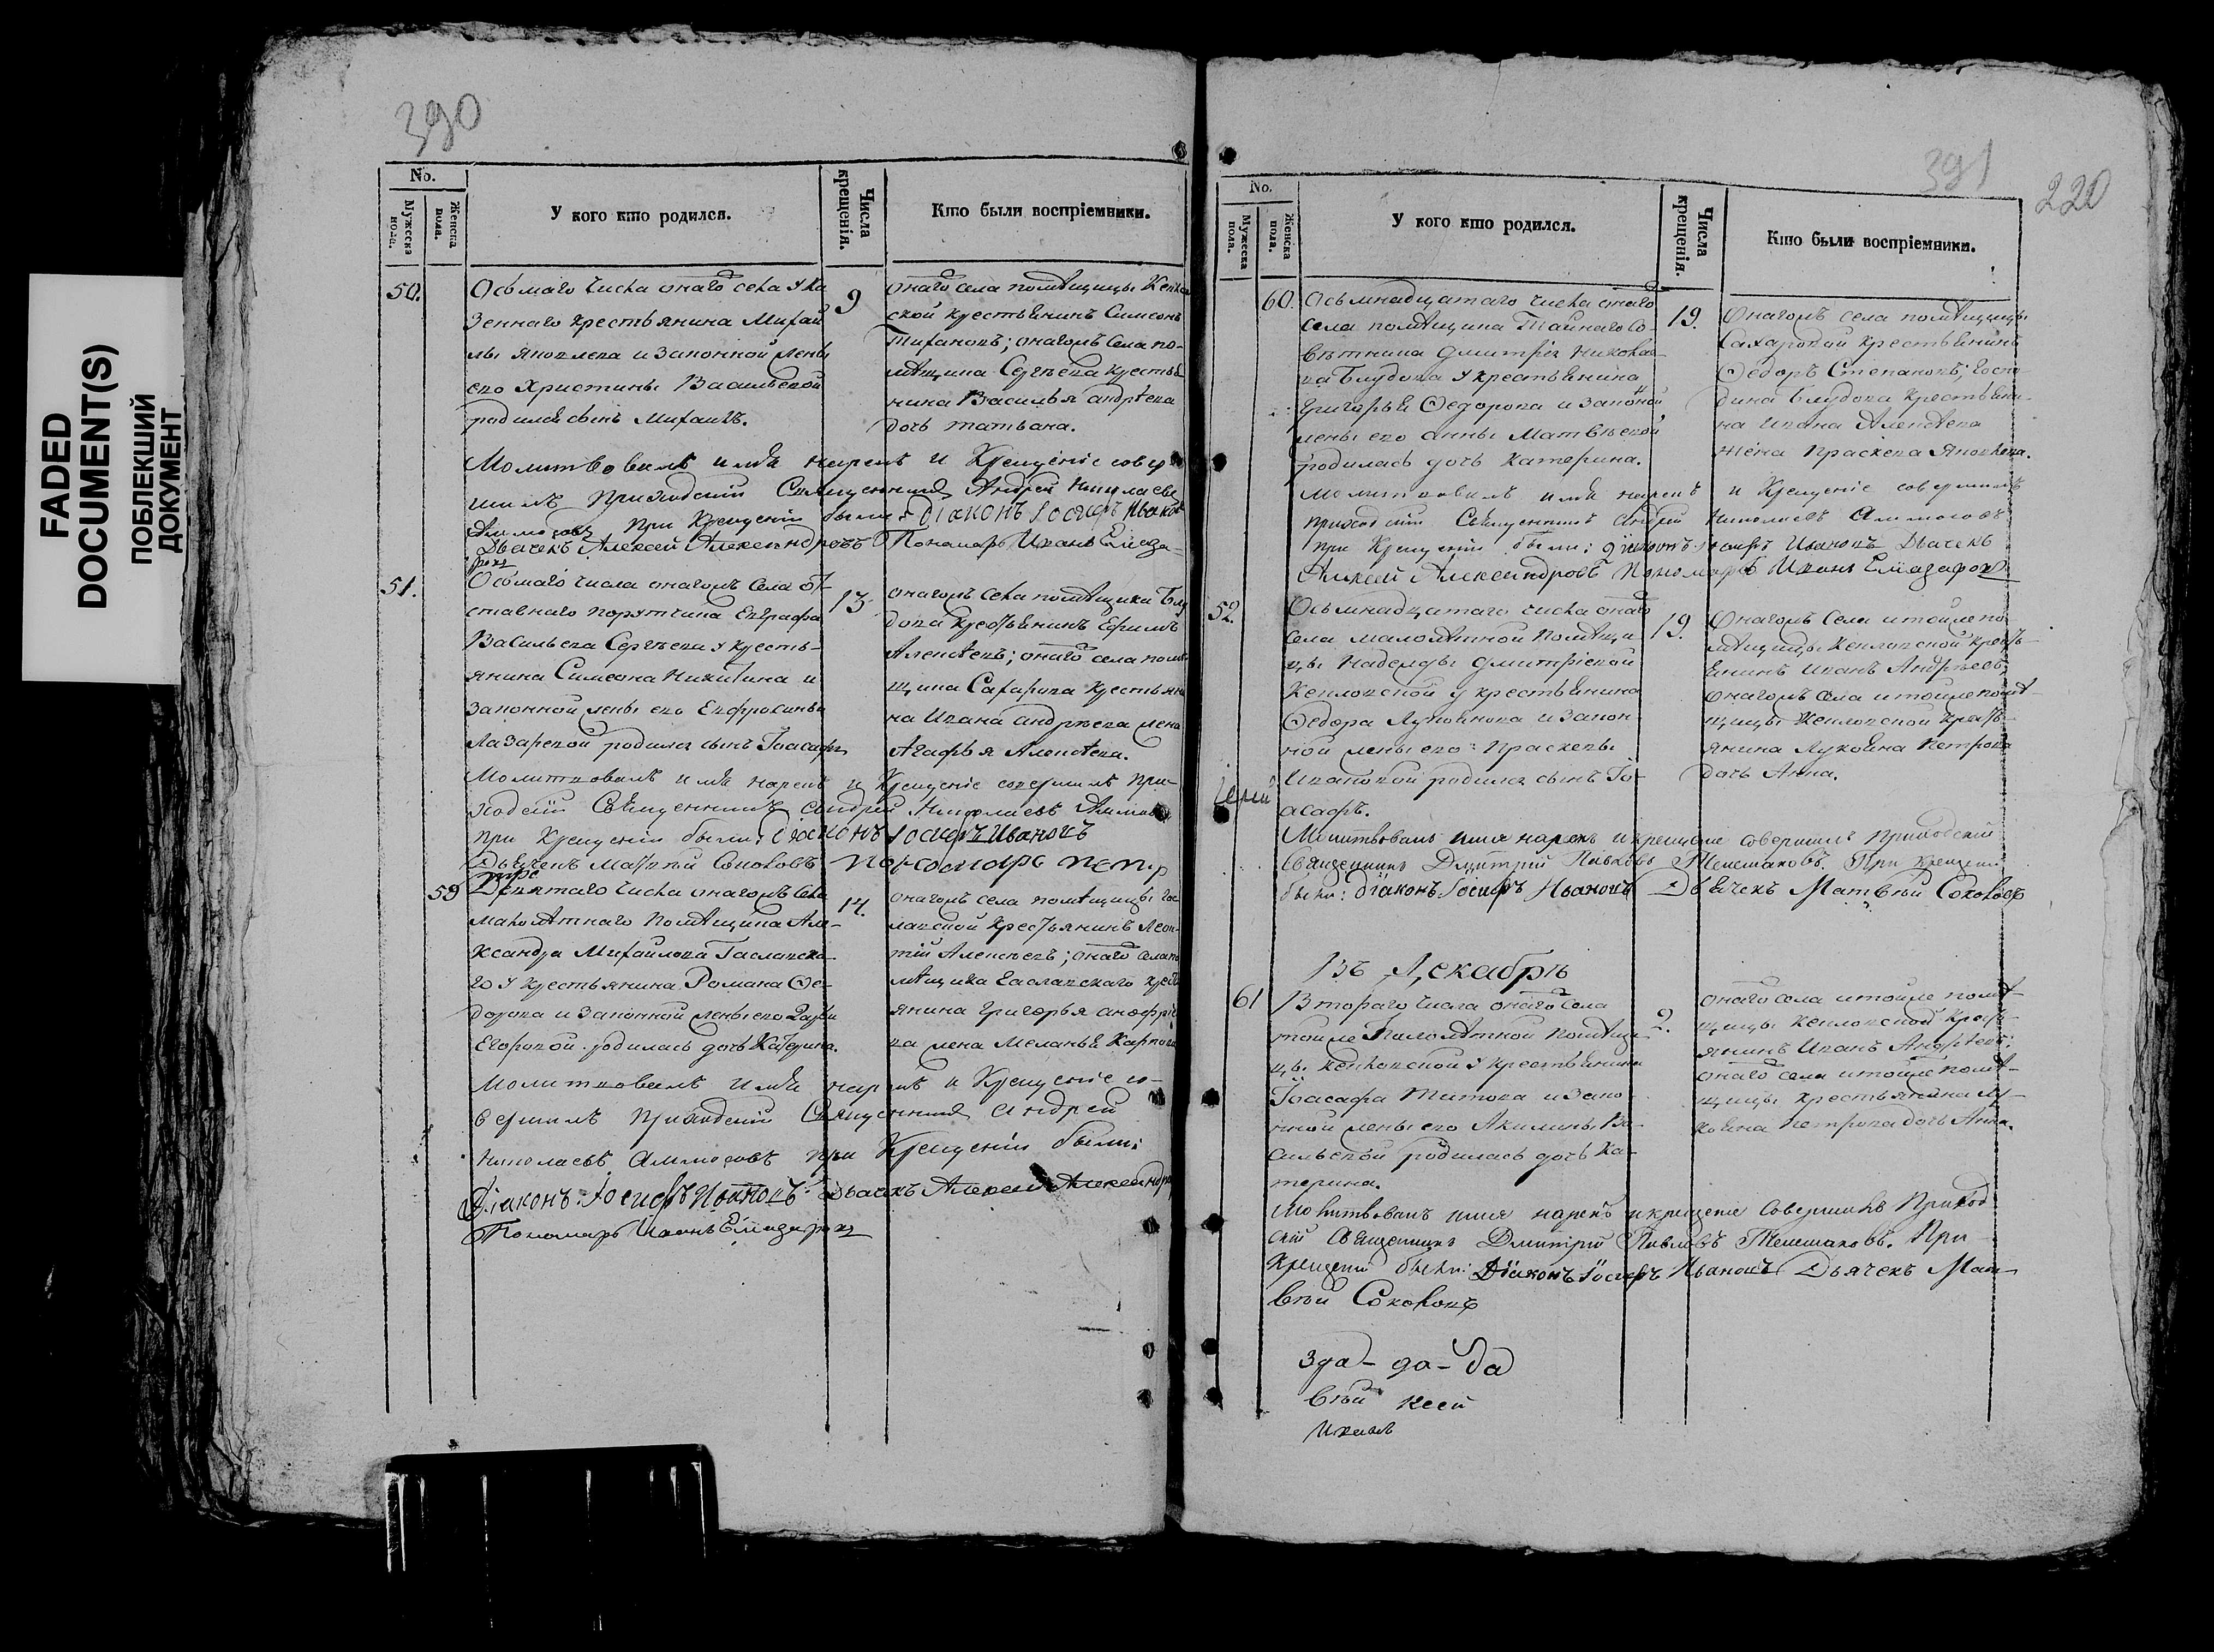 FADED
DOCUMENT(S)
ПОБЛЕКШИЙ
ДОКУМЕНТ
390
No.
Мужеска пола.
Женска пола.
У кого кто родился.
Числа крещенія.
Кто были воспріемники.
50.
Осьмаго числа онаго села у ка
зеннаго крестьянина Михай
лы Яковлева и законной жены
его Христины Васильевой
родился сынъ Михаилъ.
9
онаго села помѣщицы
ской крестьянинъ Симеонъ
Тихановъ; онагожъ села по-
мѣщика Сергѣева крестья
нина Василья Андрѣева
дочь Татьана.
Молитвовалъ имя нарекъ и Крещеніе совер
шилъ Приходскій Священникъ Андрей Николаевъ
Алимосовъ при Крещеніи были: Діаконъ Іосифъ Ивановъ
Дьячекъ Алексей Александровъ Пономарь Иванъ Елиза-
ровъ
51.
Осьмаго числа онагожъ села от
ставнаго порутчика Евграфа
Васильева Сергѣева у кресть-
янина Симеона Никитина и
законной жены его Евфросиньи
Лазаревой родился сынъ Іоасафъ
13
онагожъ села помѣщика Блу
дова крестьянинъ Ефимъ
Алексѣевъ; онаго села помѣ
щика Сахарова крестьяни
на Ивана Андрѣева жена
Агафья Алексѣева.
Молитвовалъ имя нарекъ и Крещеніе совершилъ при-
ходскій Священникъ Андрей Николаевъ Алимосовъ
при Крещеніи были: Діаконъ Іосифъ Ивановъ
Дьячекъ Матвѣй Соколовъ Пономарь Петръ
59
Девятаго числа онагожъ села
малолѣтнаго помѣщика Але-
ксандра Михайлова Гаславска
го у крестьянина Романа Ѳе-
дорова и законной жены его Дарьи
Егоровой родилась дочь Катерина.
14.
онагожъ села помѣщицы Гас
лавской крестьянинъ Леон-
тій Алексѣевъ; онаго села по
мѣщика Гаславскаго кресть
янина Григорья Анофріе
ва жена Меланья Карпова
Молитвовалъ имя нарекъ и Крещеніе со-
вершилъ Приходскій Священникъ Андрей
Николаевъ Алимосовъ при Крещеніи были:
Діаконъ Іосифъ Ивановъ Дьячекъ Алексей Александровъ
Пономарь Иванъ Елизаровъ
391
220
No.
Мужеска пола.
Женска пола.
У кого кто родился.
Числа крещенія.
Кто были воспріемники.
60.
Осьмнадцатаго числа онаго
села помѣщика Тайнаго Со-
вѣтника Дмитрія Николае-
ва Блудова у крестьянина
Григорья Ѳедорова и законой
жены его Анны Матвѣевой
родилась дочь Катерина.
19.
Онагожъ села помѣщицы
Сахаровой крестьянинъ
Ѳедоръ Степановъ; госпо
дина Блудова крестьяни-
на Ивана Алексѣева
жена Праскева Яковлева.
Молитвовалъ имя нарекъ и Крещеніе совершилъ
приходскій Священникъ Андрей Николаевъ Алимосовъ
при Крещеніи были: Діаконъ Іосифъ Ивановъ Дьячекъ
Алексей Александровъ Пономарь Иванъ Елизаровъ
52.
Осьмнадцатаго числа онаго
села малолѣтной помѣщи
цы Надежды Дмитріевой
у крестьянина
Ѳедора Лукоянова и закон-
ной жены его Праскевы
Ивановой родился сынъ Іо-
асафъ.
19.
Онагожъ села и тойже по
мѣщицы кресть
янинъ Иванъ Андрѣевъ;
онагожъ села и тойже помѣ-
щицы кресть-
янина Лукояна Петрова
дочь Анна.
Молитвовалъ имя нарекъ и крещеніе совершилъ Приходскій
Священникъ Дмитрій Павловъ Телешаковъ. При Крещеніи
были: Діаконъ Іосифъ Ивановъ Дьячекъ Матвѣй Соколовъ
Въ Декабрѣ
61
Втораго числа онаго села
тойже малолѣтной помѣщи
цы у крестьянина
Іоасафа Титова и зако-
нной жены его Акилины Ва-
сильевой родилась дочь Ка-
терина.
2.
онаго села и тойже помѣ-
щицы кресть-
янинъ Иванъ Андрѣевъ;
онаго села и тойже помѣ-
щицы крестьянина Лу-
кояна Петрова дочь Анна.
Молитвовалъ имя нарекъ и крещеніе совершилъ Приход
скій Священникъ Дмитрій Павловъ Телешаковъ. При
Крещеніи были: Діаконъ Іосифъ Ивановъ Дьячекъ Мат-
вѣй Соколовъ